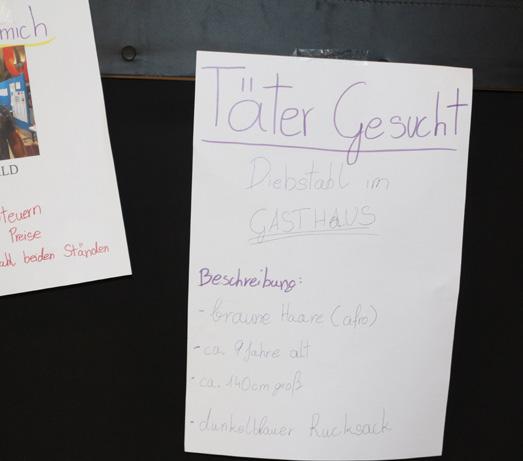 mich
LD
teuern
Preise
ahl beiden Ständen
Täter Gesucht
Diebstahl im
GASTHAUS
Beschreibung:
- braune Haare (afro)
- ca. 9 Jahre alt
- ca. 140cm groß
- dunkelblauer Rucksack